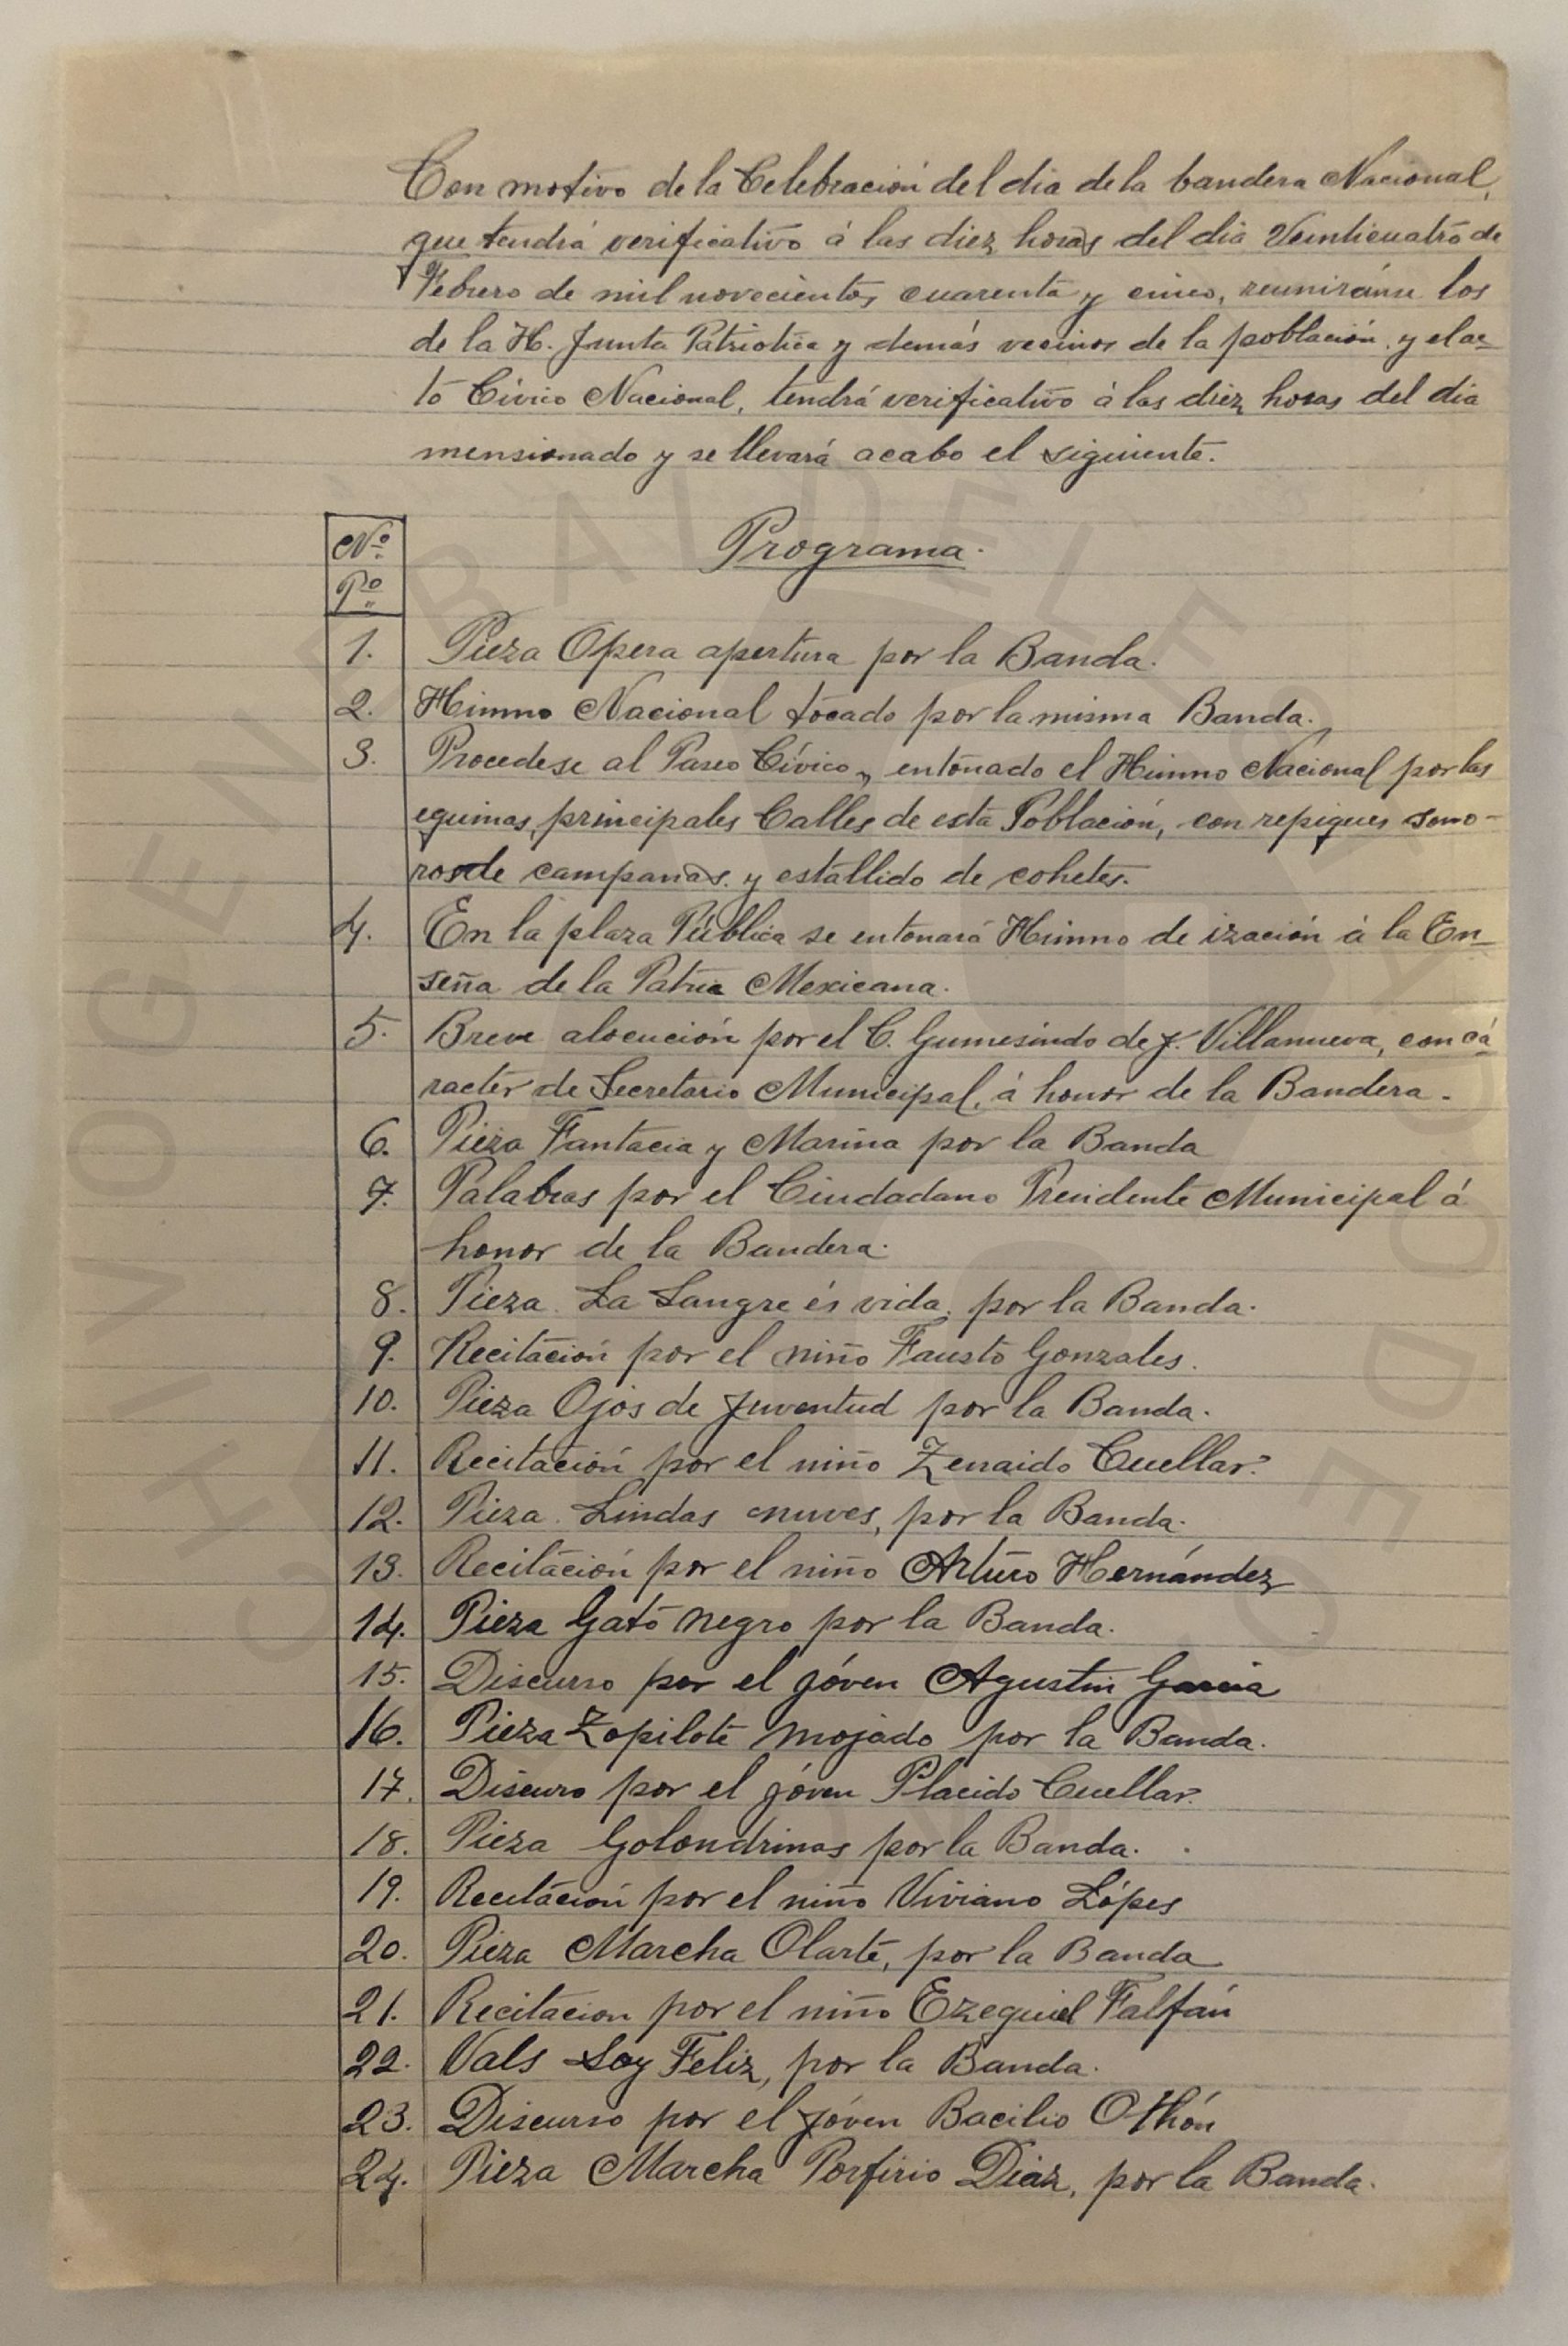 Con motivo de la Celebración del dia de la bandera Nacional,
que tendrá verificativo á las diez horas del dia Veinticuatro de
Febrero de mil novecientos cuarenta y cinco, reuniránse los
de la H. Junta Patriotica y demás vecinos de la población, y el ac-
to Cívico Nacional, tendrá verificativo á las diez horas del dia
mensionado y se llevará acabo el siguiente.
Nº
Pº
Programa.
1. Pieza Opera apertura por la Banda.
2. Himno Nacional tocado por la misma Banda.
3. Procedese al Paseo Cívico, entonado el Himno Nacional por las
equinas, principales Calles de esta Población, con repiques sono-
rosde campanas. y estallido de cohetes.
4. En la plaza Pública se entonará Himno de ización á la En-
seña de la Patria Mexicana.
5. Breve alocución por el C. Gumesindo de J. Villanueva, con cá-
racter de Secretario Municipal, á honor de la Bandera.
6. Pieza Fantacia y Marina por la Banda
7. Palabras por el Ciudadano Presidente Municipal á
honor de la Bandera.
8. Pieza. La Sangre és vida, por la Banda.
9. Recitación por el niño Fausto Gonzales.
10. Pieza Ojos de Juventud por la Banda.
11. Recitación por el niño Zenaido Cuellar.
12. Pieza. Lindas nuves, por la Banda.
13. Recitación por el niño Arturo Hernández
14. Pieza Gato negro por la Banda.
15. Discurso por el jóven Agustin Garcia
16. Pieza Zopilote mojado por la Banda.
17. Discuro por el jóven Placido Cuellar.
18. Pieza Golondrinas por la Banda.
19. Recitación por el niño Viviano Lópes
20. Pieza Marcha Olarte, por la Banda
21. Recitacion por el niño Ezequiel Falfán
22. Vals Soy Feliz, por la Banda.
23. Discurso por el jóven Bacilio Othón
24. Pieza Marcha Porfirio Diaz, por la Banda.
ARCHIVO GENERAL DEL ESTADO DE